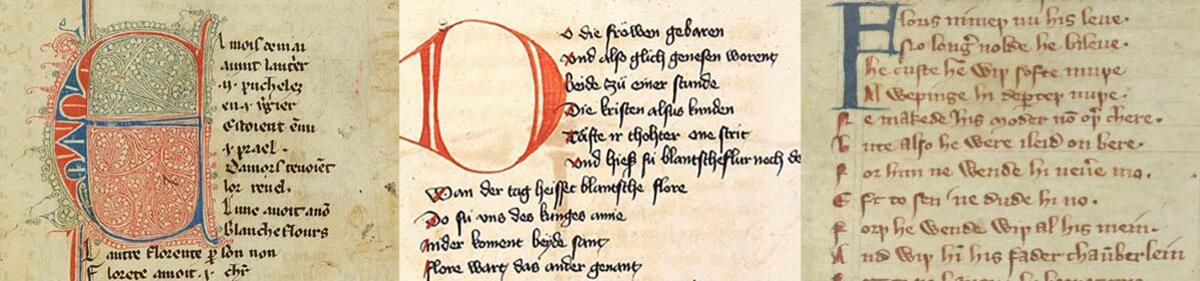 El mois de mai
auint lautrer
.ij. puchelez
en .i. vgier
estoient
.i. prael .
Damors tenoiẽt
lor reuel .
Lune auoit anõ
Blancheflours
Lautre florente p son non
Florete auoit .i. chr
Do die fröwen gebaren
Vnd also glich genesen worent
beide tzü einer stunde
Die kristen alsus kunden
ir thohter one strit
vnd hieß sü blantscheflur noch de
Wan der tag heisset blantsche flore
Do sü vns des kunges amie
Ander koment beyde sant
flore wart das ander genant
Floris nimeþ nu his leue.
No leng' nolde he bileue.
he custe hẽ wiþ softe muþe
Al wepinge hi deꝑteþ nuþe.
Ne makede his moder nõ oþ' chere.
bute also he were ileid on bere.
For him ne wende hi neure mo.
Eft to sen ne dude hi no.
Forþ he wende wiþ al his mein.
And wiþ hĩ his fader chaũberlein